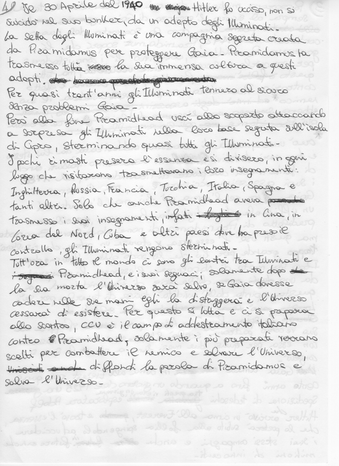 Il 30 Aprile del 1940 Hitler fu ucciso, non si
suicidò nel suo bunker, da un adepto degli Illuminati.
La setta degli Illuminati è una compagnia segreta creata
da Piramidamus per proteggere Gaia. Piramidamus
trasmesso tutta la sua immensa cultura a questi
adepti.
Per quasi trent'anni gli Illuminati tennero al sicuro
senza problemi Gaia.
Però alla fine Piramidhead uscì allo scoperto attaccando
a sorpresa gli Illuminati nella loro base segreta sull'isola
di Cipro, sterminando quasi tutti gli Illuminati.
I pochi rimasti presero l'essenza e si divisero, in ogni
luogo che visitarono trasmettevano i loro insegnamenti:
Inghilterra, Russia, Francia, Turchia, Italia, Spagna e
tanti altri. Solo che anche Piramidhead aveva
trasmesso i suoi insegnamenti, infatti in Cina, in
Corea del Nord, Cuba e altri paesi dove ha preso il
controllo, gli Illuminati vengono sterminati.
Tutt'ora in tutto il mondo ci sono gli scontri tra Illuminati e
Piramidhead, e i suoi seguaci, solamente dopo
la sua morte l'Universo sarà salvo, se Gaia dovesse
cadere nelle sue mani egli la distruggerà e l'Universo
cesserà di esistere. Per questo si lotta e ci si prepara
allo scontro, CCU è il campo di addestramento italiano
contro Piramidhead, solamente i più preparati verrano
scelti per combattere il nemico e salvare l'Universo,
diffondi la parola di Piramidamus e
salva l'Universo.